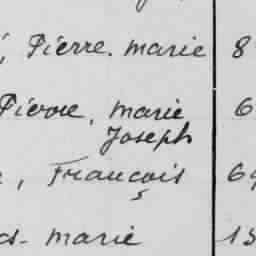 , Pierre. marie 8
Pierre, marie 6
Joseph
, Francois 69
marie 13